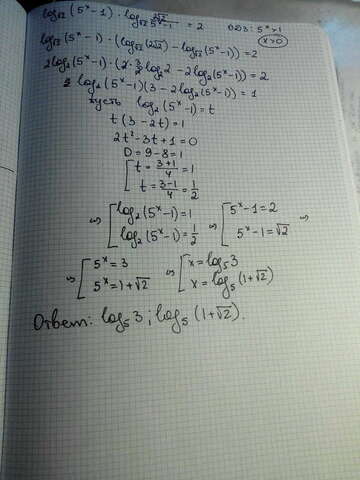 log√2 (5ˣ-1) · log√2 2√2/(5ˣ-1) = 2 ОДЗ: 5ˣ>1
x>0
log√2(5ˣ-1) · (log√2(2√2) - log√2(5ˣ-1)) = 2
2log₂(5ˣ-1) · (2·3/2 log₂2 - 2log₂(5ˣ-1)) = 2
log₂(5ˣ-1)(3-2log₂(5ˣ-1)) = 1
пусть log₂(5ˣ-1) = t
t(3-2t) = 1
2t²-3t+1 = 0
D = 9-8 = 1
[ t = (3+1)/4 = 1
t = (3-1)/4 = 1/2
⇔ [ log₂(5ˣ-1) = 1 ⇔ [ 5ˣ-1 = 2 ⇔
log₂(5ˣ-1) = 1/2 5ˣ-1 = √2
⇔ [ 5ˣ = 3 ⇔ [ x = log₅3
5ˣ = 1+√2 x = log₅(1+√2)
Ответ: log₅3 ; log₅(1+√2).